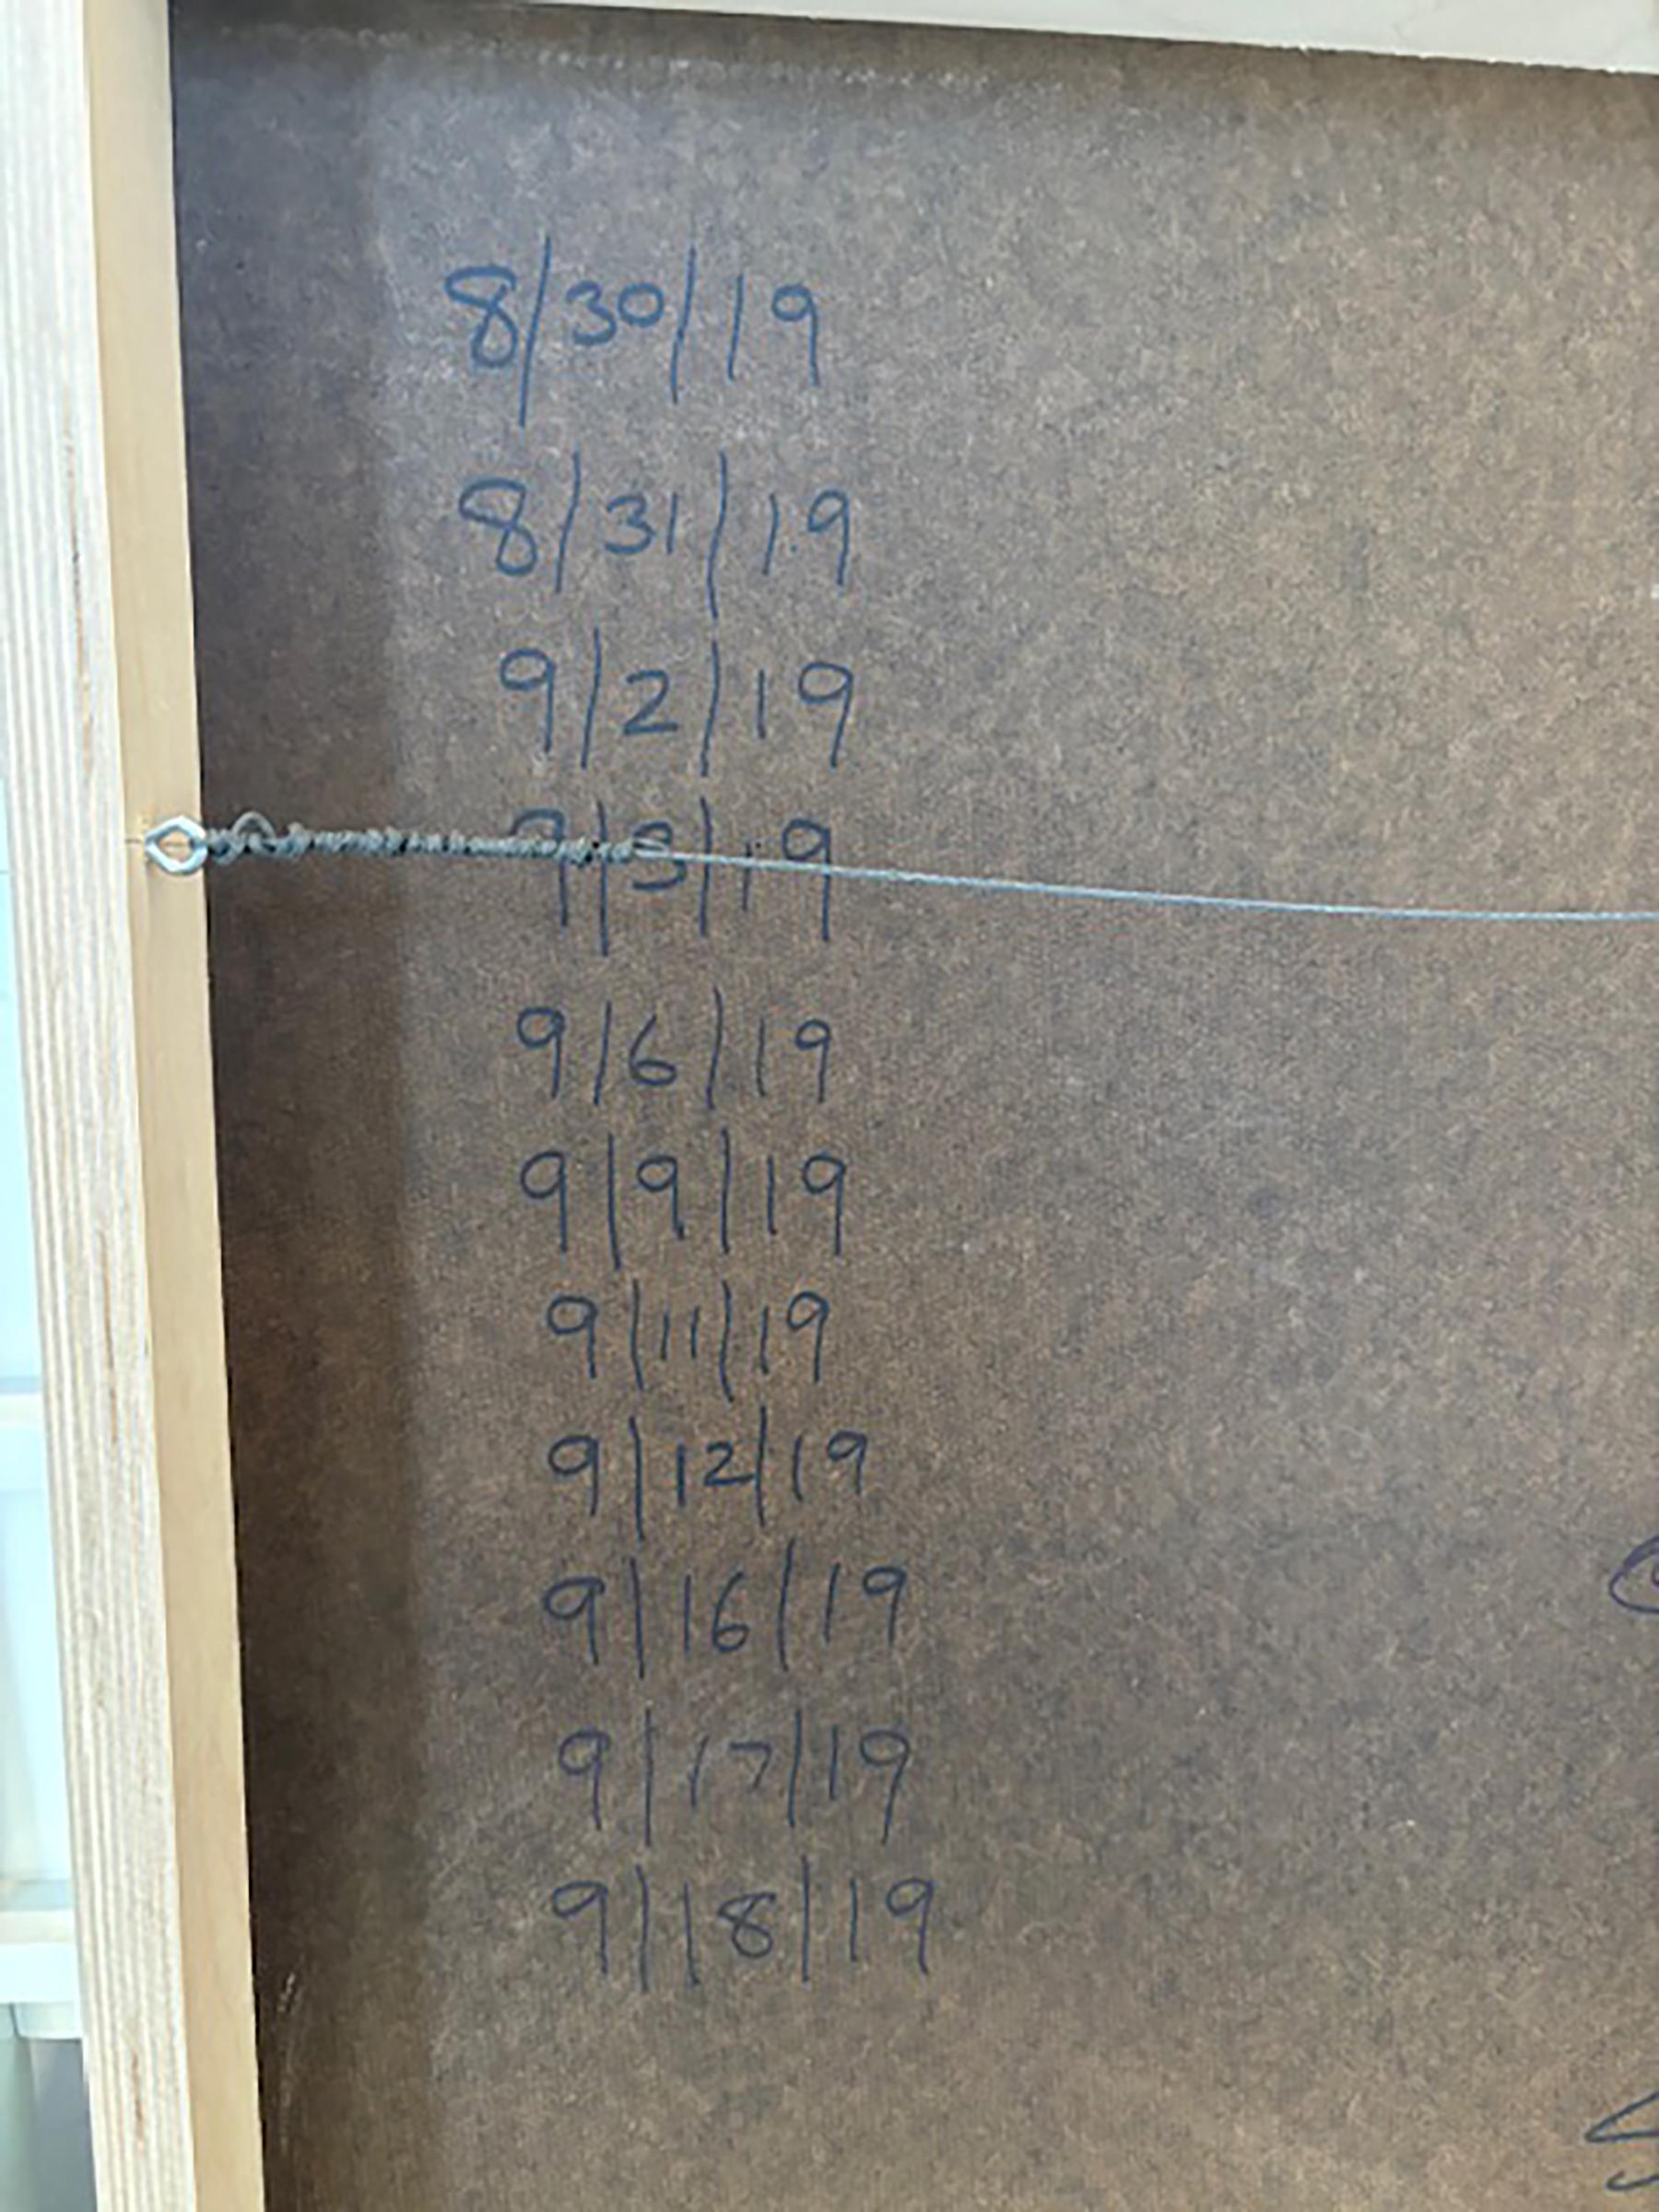 8/30/19
8/31/19
9/2/19
9/3/19
9/6/19
9/9/19
9/11/19
9/12/19
9/16/19
9/17/19
9/18/19